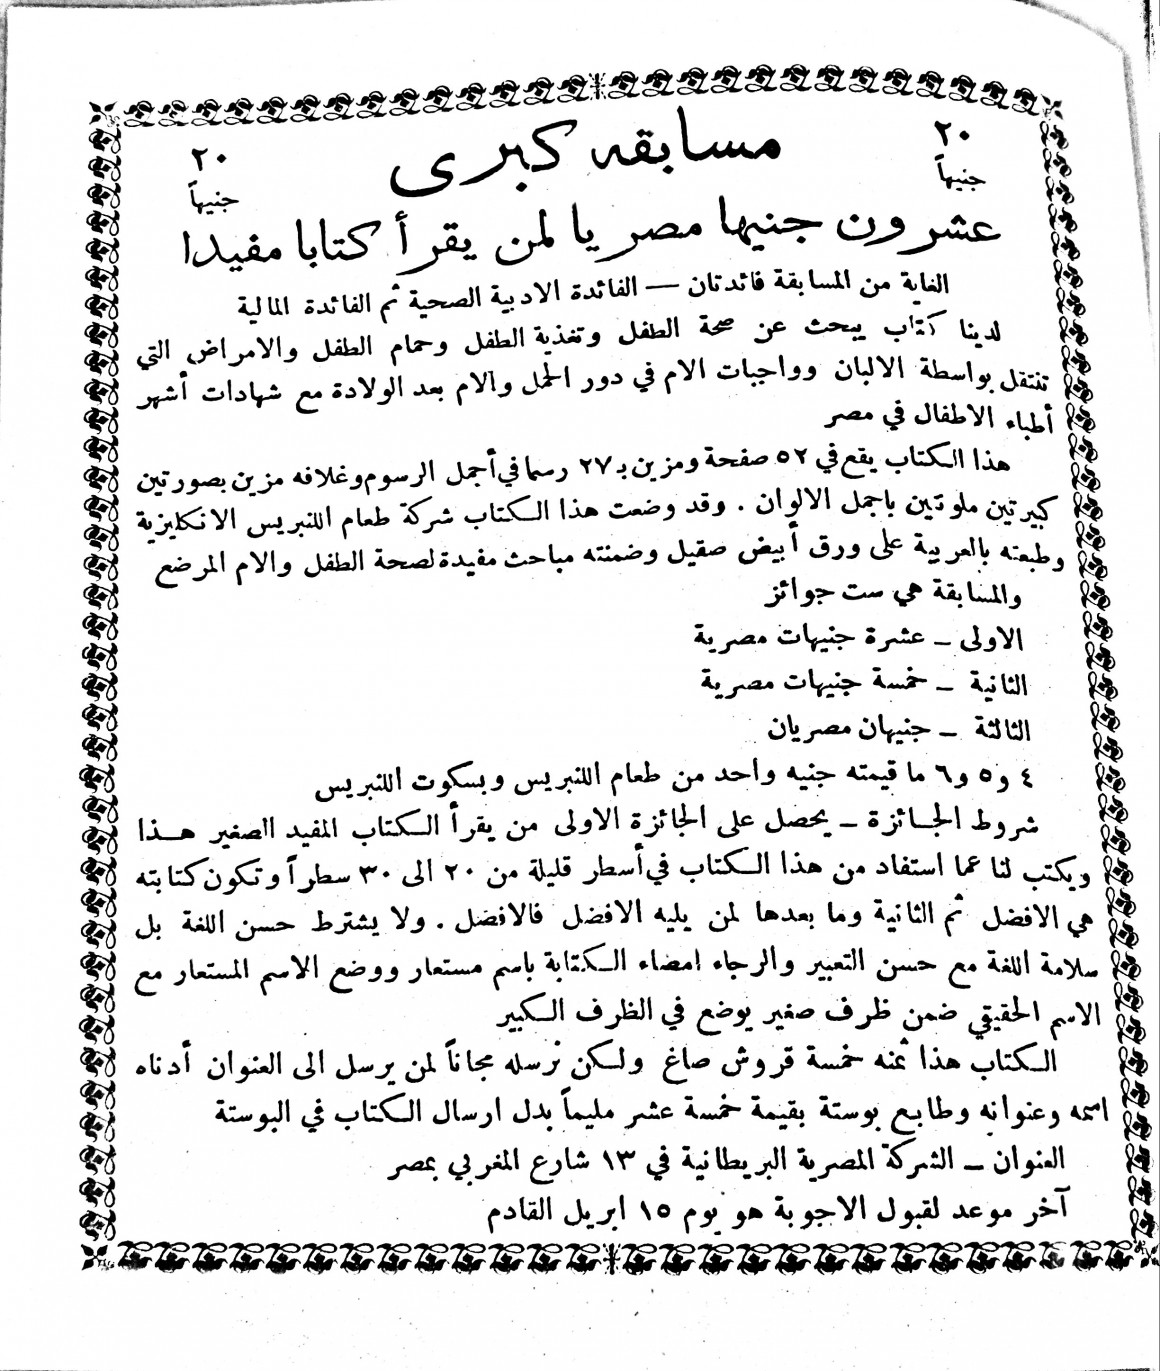 ٢٠ جنيهاً
مسابقه كبرى
٢٠ جنيهاً
عشرون جنيها مصريا لمن يقرأ كتابا مفيدا
الغاية من المسابقة فائدتان — الفائدة الادبية الصحية ثم الفائدة المالية
لدينا كتاب يبحث عن صحة الطفل وتغذية الطفل وحمام الطفل والامراض التي
تنتقل بواسطة الالبان وواجبات الام في دور الحمل والام بعد الولادة مع شهادات أشهر
أطباء الاطفال في مصر
هذا الكتاب يقع في ٥٢ صفحة ومزين بـ ٢٧ رسما في أجمل الرسوم وغلافه مزين بصورتين
كبيرتين ملوتين باجمل الالوان . وقد وضعت هذا الكتاب شركة طعام اللنبريس الانكليزية
وطبعته بالعربية على ورق أبيض صقيل وضمنته مباحث مفيدة لصحة الطفل والام المرضع
والمسابقة هي ست جوائز
الاولى — عشرة جنيهات مصرية
الثانية — خمسة جنيهات مصرية
الثالثة — جنيهان مصريان
٤ و ٥ و ٦ ما قيمته جنيه واحد من طعام اللنبريس وبسكوت اللنبريس
شروط الجائزة — يحصل على الجائزة الاولى من يقرأ الكتاب المفيد الصغير هذا
ويكتب لنا عما استفاد من هذا الكتاب في أسطر قليلة من ٢٠ الى ٣٠ سطراً وتكون كتابته
هي الافضل ثم الثانية وما بعدها لمن يليه الافضل فالافضل . ولا يشترط حسن اللغة بل
سلامة اللغة مع حسن التعبير والرجاء امضاء الكتابة باسم مستعار ووضع الاسم المستعار مع
الاسم الحقيقي ضمن ظرف صغير يوضع في الظرف الكبير
الكتاب هذا ثمنه خمسة قروش صاغ ولكن نرسله مجاناً لمن يرسل الى العنوان أدناه
اسمه وعنوانه وطابع بوستة بقيمة خمسة عشر مليماً بدل ارسال الكتاب في البوستة
العنوان — الشركة المصرية البريطانية في ١٣ شارع المغربي بمصر
آخر موعد لقبول الاجوبة هو يوم ١٥ ابريل القادم